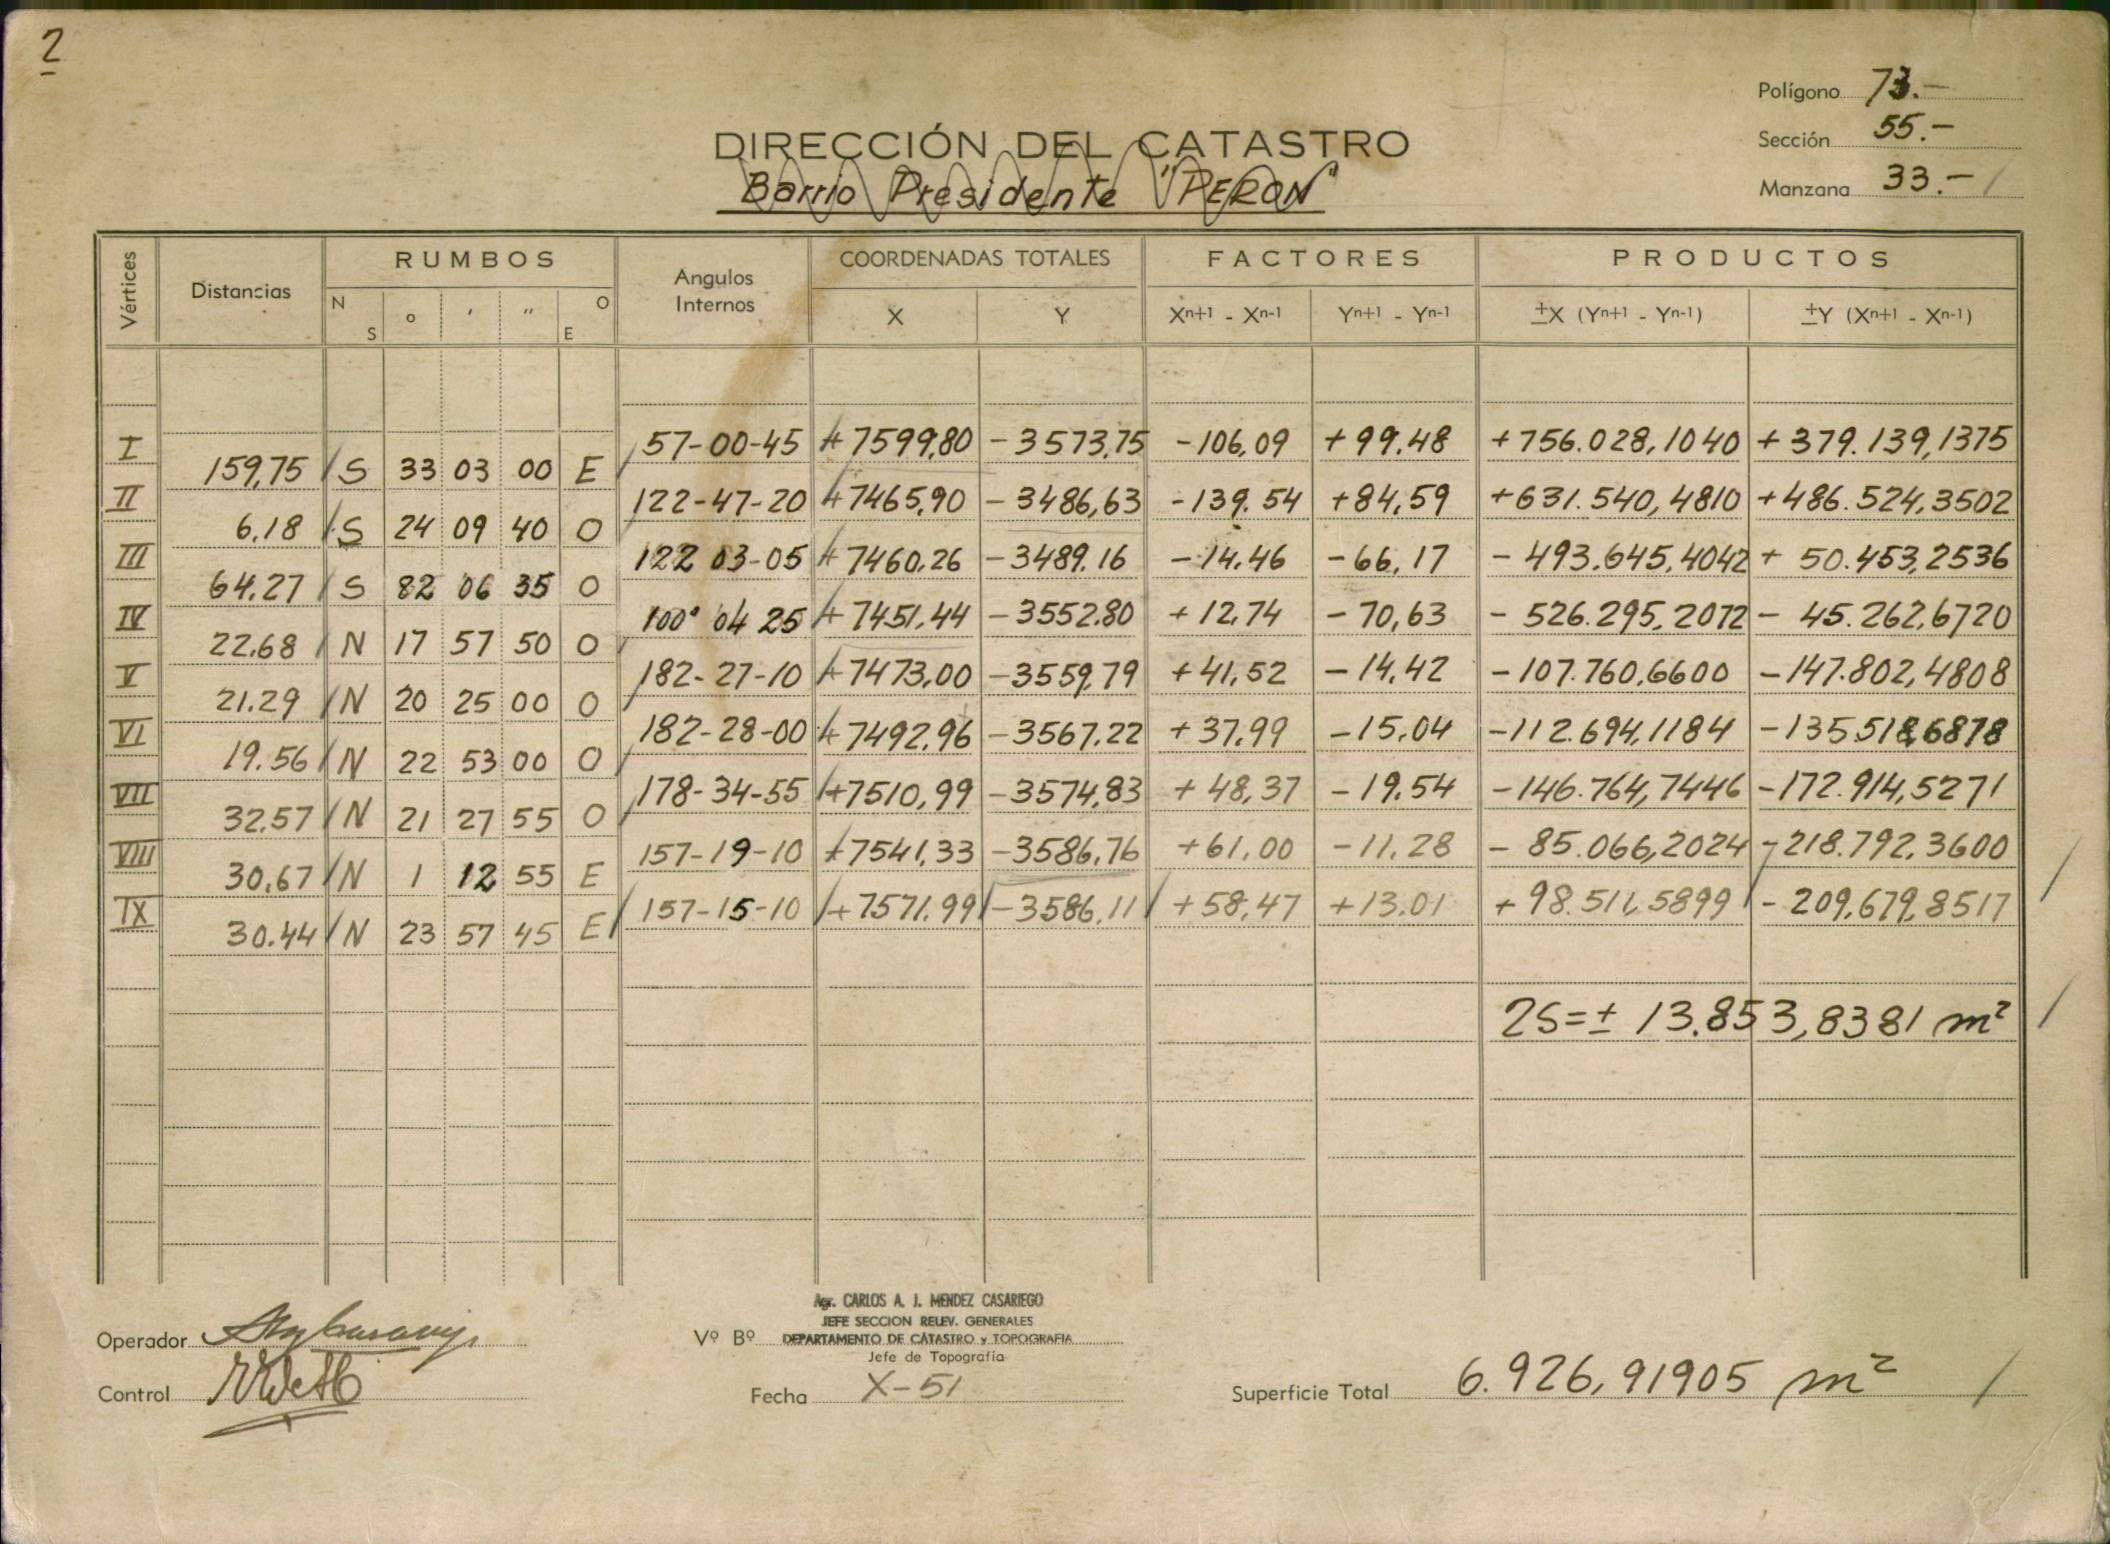 2
Polígono 73.-
Sección 55.-
Manzana 33.-
DIRECCIÓN DEL CATASTRO
Barrio Presidente "PERON"
Vértices Distancias RUMBOS Angulos Internos COORDENADAS TOTALES FACTORES PRODUCTOS
N S o ' '' O E X Y Xn+1 - Xn-1 Yn+1 - Yn-1 ±X (Yn+1 - Yn-1) ±Y (Xn+1 - Xn-1)
I 57-00-45 +7599,80 -3573,75 -106,09 +99,48 +756.028,1040 +379.139,1375
159,75 S 33 03 00 E
II 122-47-20 +7465,90 -3486,63 -139.54 +84,59 +631.540,4810 +486.524,3502
6,18 S 24 09 40 O
III 122 03-05 +7460,26 -3489.16 -14,46 -66,17 -493.645,4042 +50.453,2536
64,27 S 82 06 35 O
IV 100° 04 25 +7451,44 -3552,80 +12,74 -70,63 -526.295,2072 -45.262,6720
22,68 N 17 57 50 O
V 182-27-10 +7473,00 -3559,79 +41,52 -14,42 -107.760,6600 -147.802,4808
21.29 N 20 25 00 O
VI 182-28-00 +7492,96 -3567,22 +37,99 -15,04 -112.694,1184 -135.518,6878
19.56 N 22 53 00 O
VII 178-34-55 +7510,99 -3574,83 +48,37 -19,54 -146.764,7446 -172.914,5271
32,57 N 21 27 55 O
VIII 157-19-10 +7541,33 -3586,76 +61,00 -11,28 -85.066,2024 -218.792,3600
30,67 N 1 12 55 E
IX 157-15-10 +7571,99 -3586,11 +58,47 +13,01 +98.511,5899 -209,679,8517
30.44 N 23 57 45 E
2S=± 13.853,8381 m²
Agr. CARLOS A. J. MENDEZ CASARIEGO
JEFE SECCION RELEV. GENERALES
Operador
Vº Bº DEPARTAMENTO DE CATASTRO y TOPOGRAFIA
Jefe de Topografía
Control
Fecha X-51
Superficie Total 6.926,91905 m²